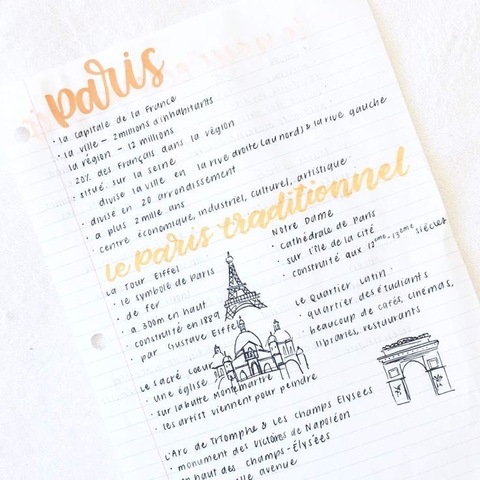 paris
· la capitale de la France
· la ville – 2 millions d'inhabitants
la région – 12 millions
20% des Français dans la région
· situé sur la seine
divise la ville en la rive droite (au nord) & la rive gauche
· divisé en 20 arrondissement
· a plus 2 mille ans
· centre économique, industriel, culturel, artistique
le paris traditionnel
La Tour Eiffel
· le symbole de Paris
· de fer
· a 300m en haut
· construité en 1889
· par Gustave Eiffel
Notre Dame
· cathédrale de Paris
· sur l'île de la cité
· construité aux 12ème-13ème siècles
Le Quartier Latin:
· quartier des étudiants
· beaucoup de cafés, cinémas,
libraries, restaurants
Le Sacré Cœur
· une église
· sur la butte Montmartre
· les artist viennent pour peindre
L'Arc de Triomphe & Les Champs Elysées
· monument des victoires de Napoléon
en haut des champs-Élysées
elle avenue